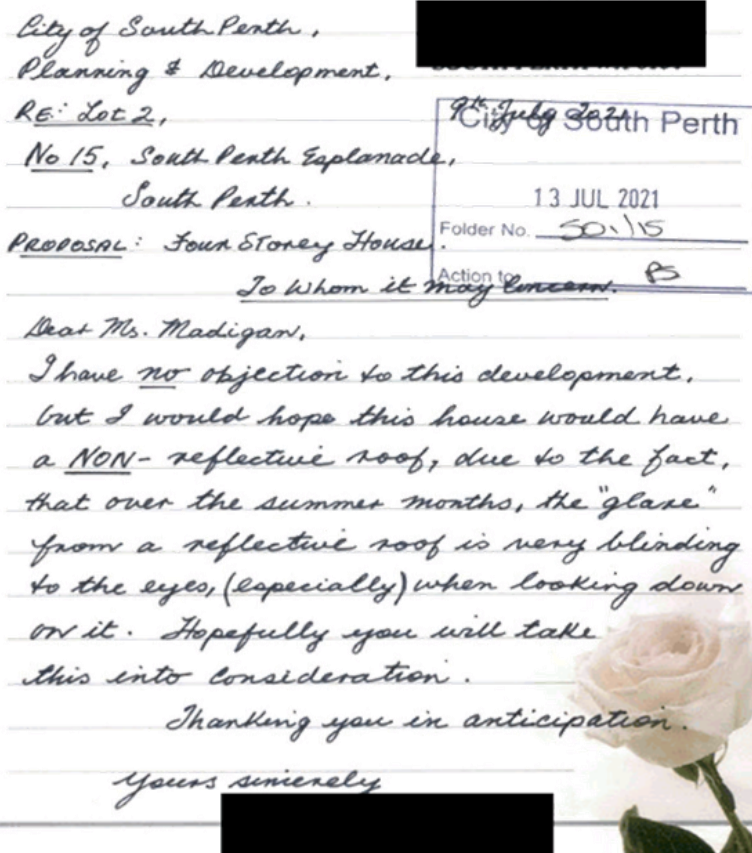 City of South Perth,
Planning & Development.
RE: Lot 2,
9th July 2021
City of South Perth
No 15, South Perth Esplanade,
South Perth.
13 JUL 2021
Folder No. 50./15
PROPOSAL: Four Storey House.
Action to PS
To Whom it may Concern.
Dear Ms. Madigan,
I have no objection to this development,
but I would hope this house would have
a NON- reflective roof, due to the fact,
that over the summer months, the "glare"
from a reflective roof is very blinding
to the eyes, (especially) when looking down
on it. Hopefully you will take
this into Consideration.
Thanking you in anticipation.
Yours sincerely